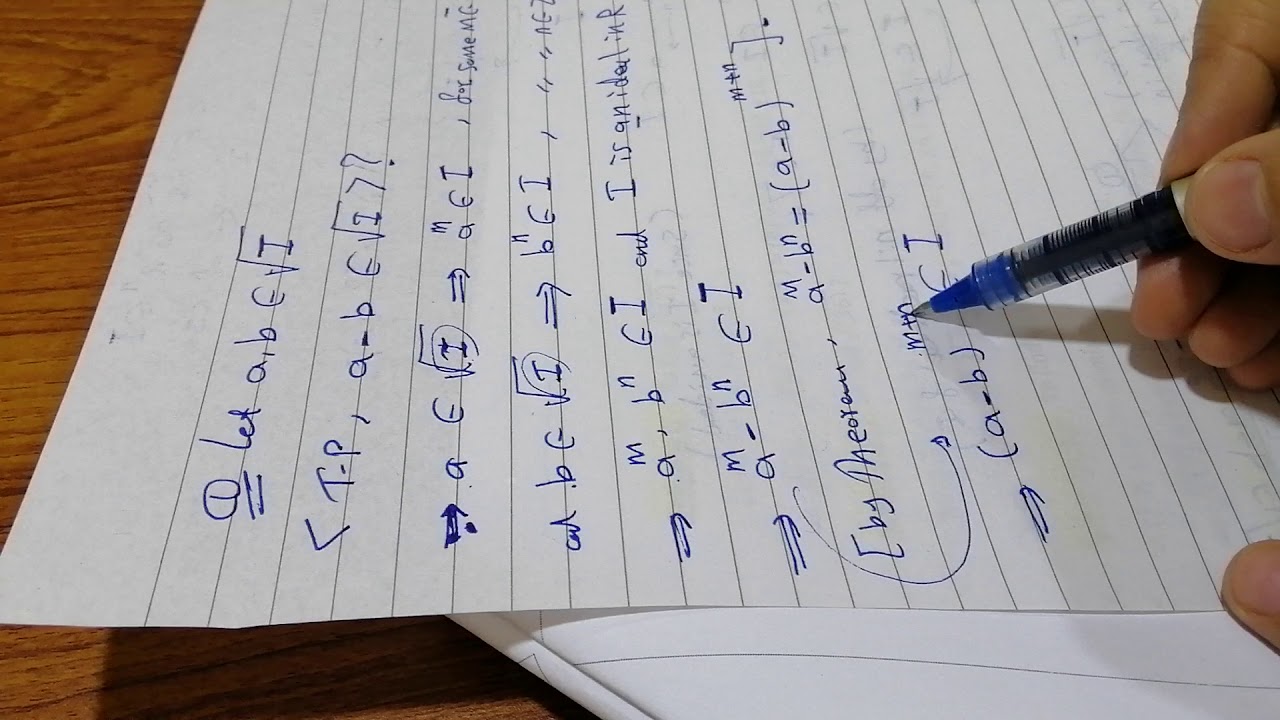 ① Let a,b ∈ √I
< T.P , a-b ∈ √I >?
⇒ a ∈ √I ⇒ aᵐ ∈ I , for some m∈
and b ∈ √I ⇒ bⁿ ∈ I , 〃 〃 n∈Z
⇒ aᵐ , bⁿ ∈ I and I is an ideal in R
⇒ aᵐ - bⁿ ∈ I
[by Theorem , aᵐ - bⁿ = (a-b)ᵐ⁺ⁿ ] .
⇒ (a-b)ᵐ⁺ⁿ ∈ I